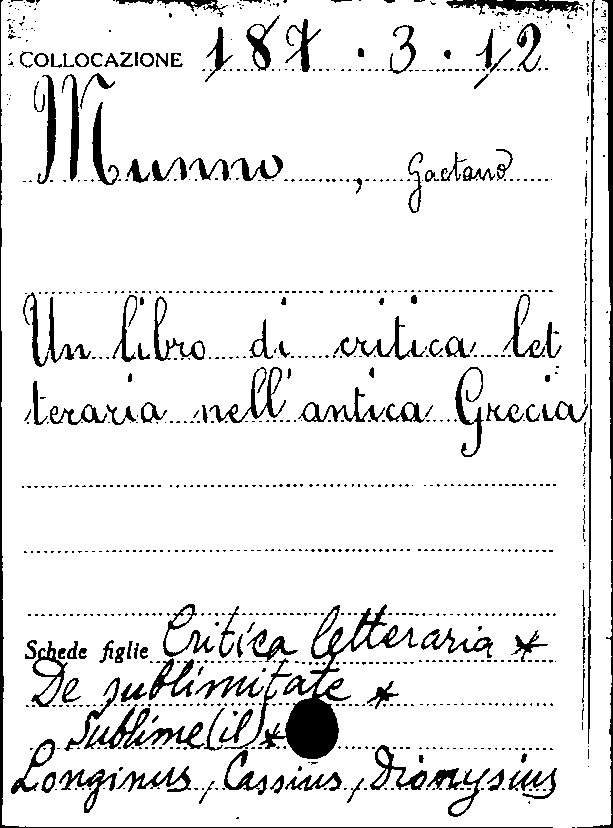 COLLOCAZIONE 187.3.12
Munno, Gaetano
Un libro di critica let
teraria nell'antica Grecia
Schede figlie Critica letteraria *
De sublimitate *
Sublime (il) *
Longinus, Cassius, Dionysius